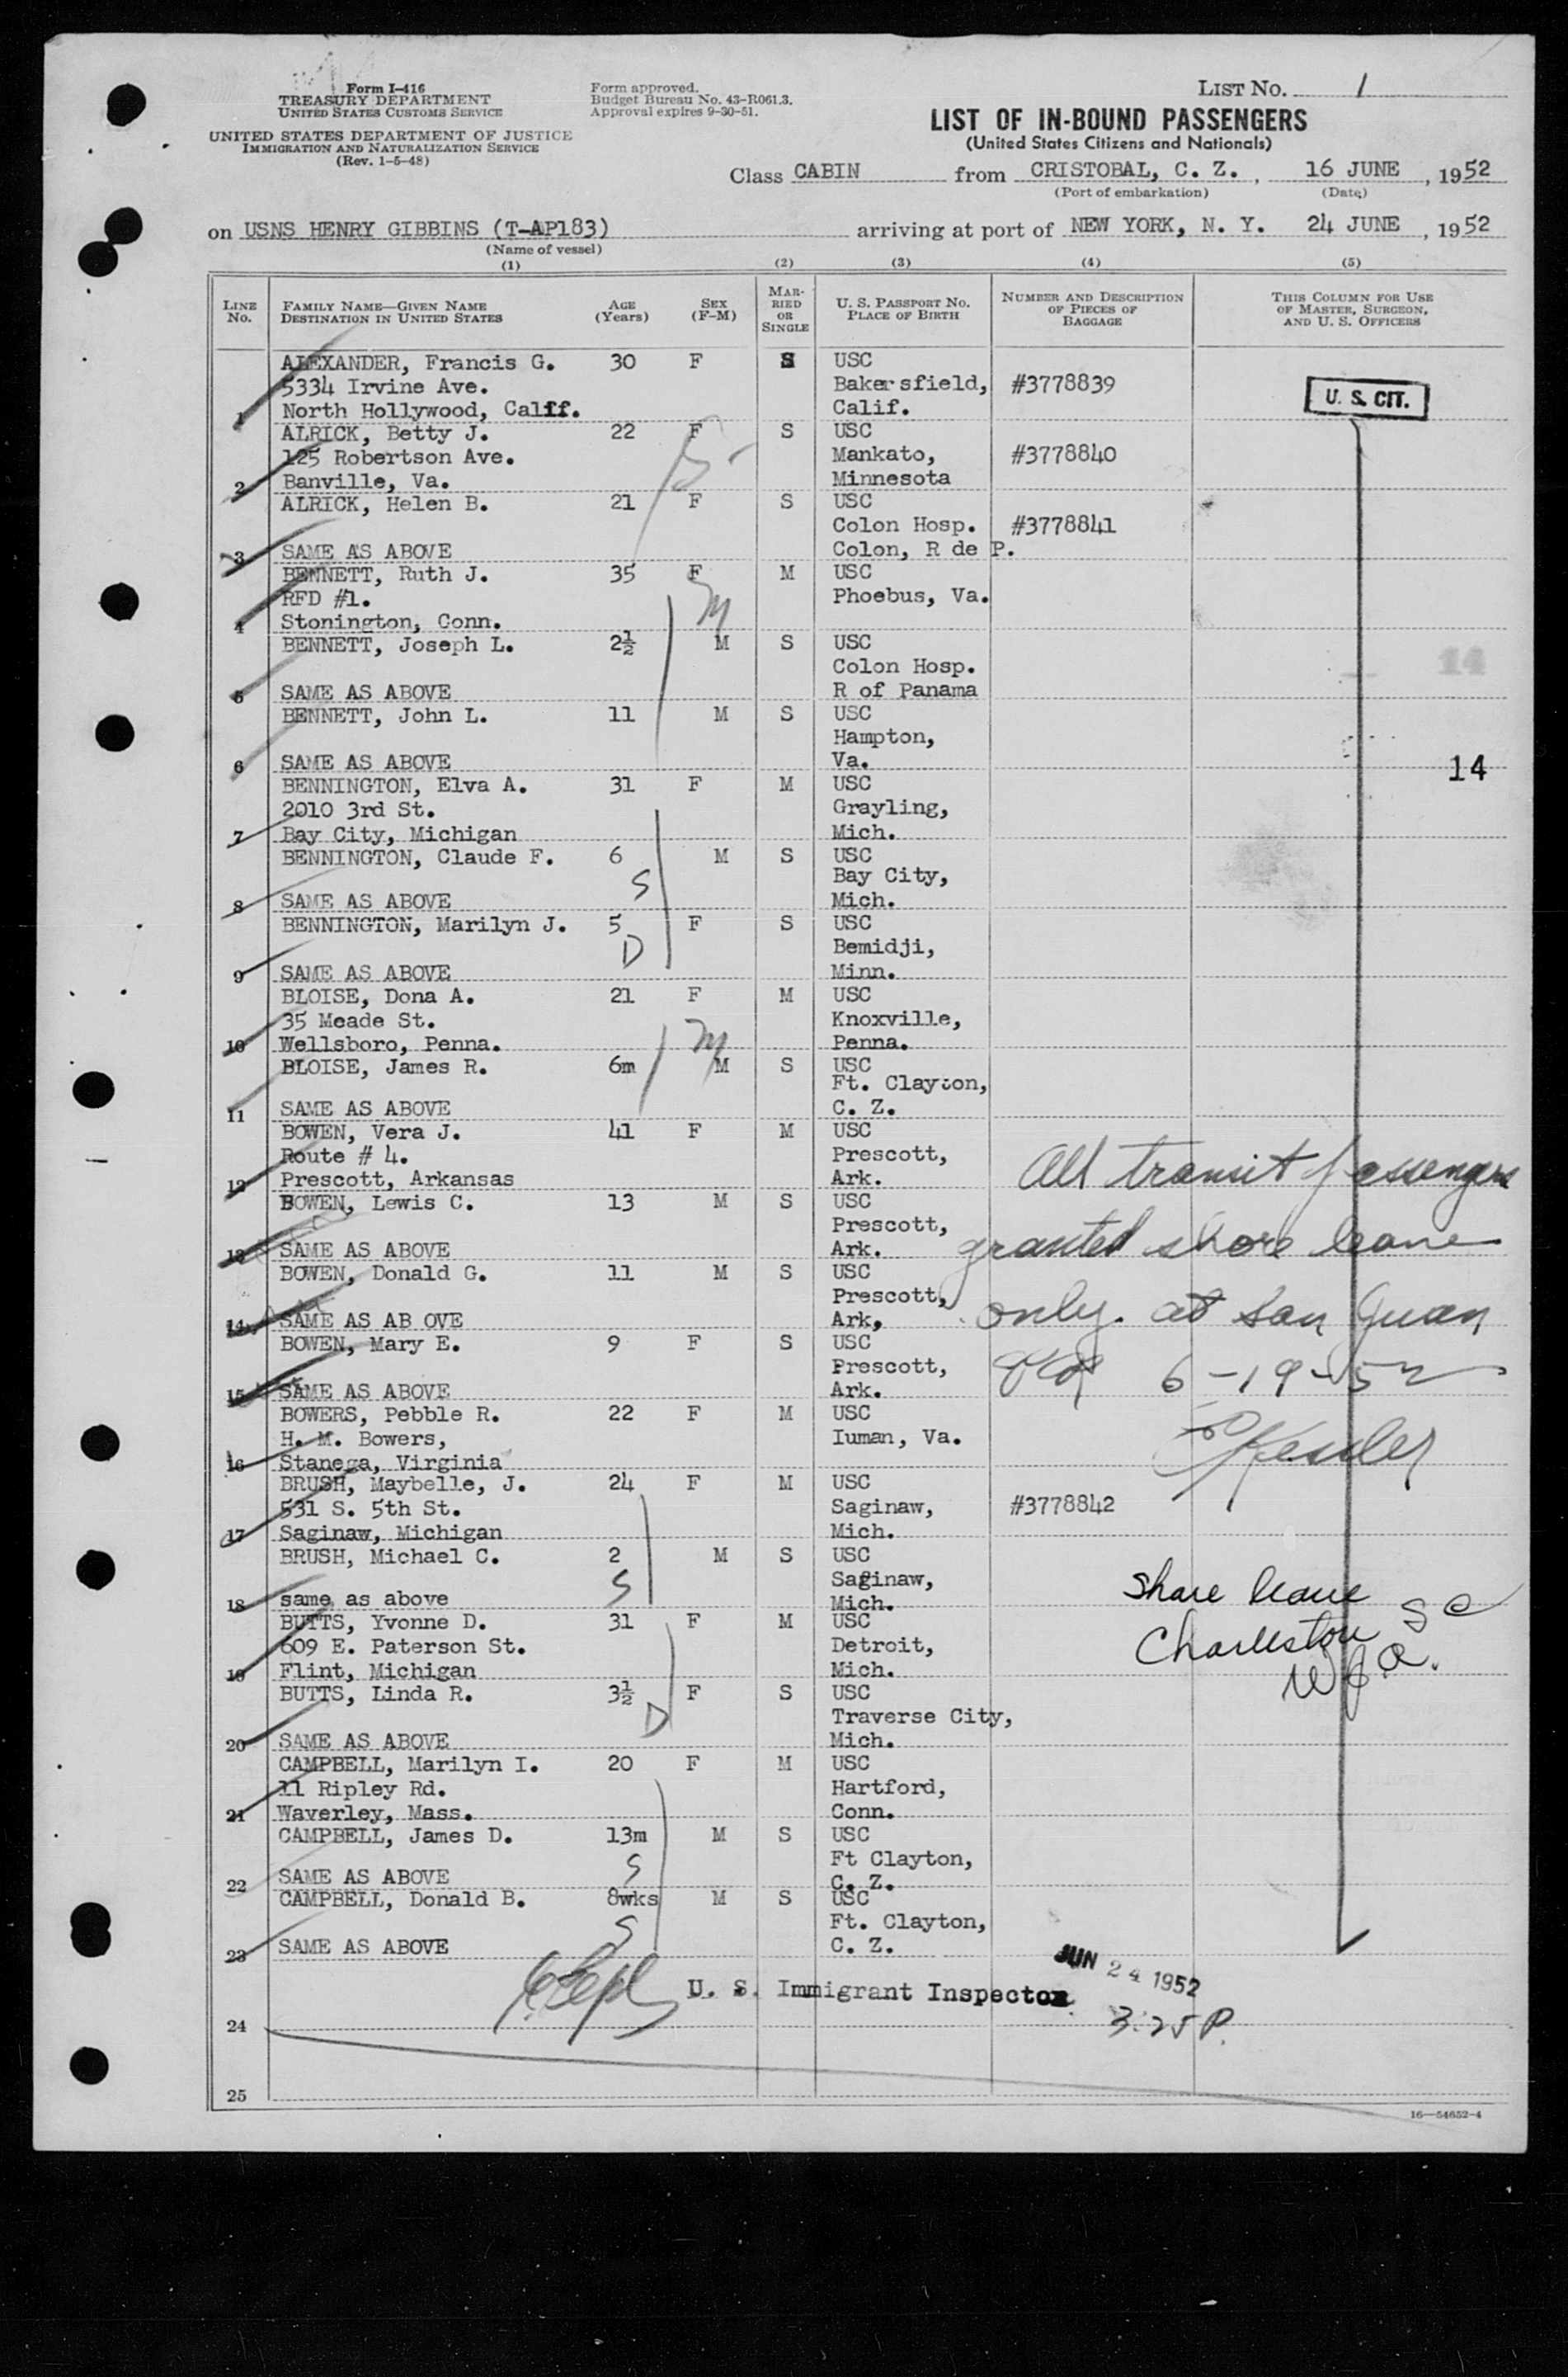 Form I-416
TREASURY DEPARTMENT
UNITED STATES CUSTOMS SERVICE
UNITED STATES DEPARTMENT OF JUSTICE
IMMIGRATION AND NATURALIZATION SERVICE
(Rev. 1-5-48)
Form approved.
Budget Bureau No. 43-R061.3.
Approval expires 9-30-51.
LIST NO. 1
LIST OF IN-BOUND PASSENGERS
(United States Citizens and Nationals)
Class CABIN from CRISTOBAL, C. Z., 16 JUNE, 1952
(Port of embarkation) (Date)
on USNS HENRY GIBBINS (T-AP183) arriving at port of NEW YORK, N. Y. 24 JUNE, 1952
(Name of vessel)
(1) (2) (3) (4) (5)
LINE NO. FAMILY NAME—GIVEN NAME DESTINATION IN UNITED STATES AGE (Years) SEX (F-M) MARRIED OR SINGLE U. S. PASSPORT NO. PLACE OF BIRTH NUMBER AND DESCRIPTION OF PIECES OF BAGGAGE THIS COLUMN FOR USE OF MASTER, SURGEON, AND U. S. OFFICERS
ALEXANDER, Francis G. 30 F S USC
5334 Irvine Ave. Bakersfield, #3778839 U. S. CIT.
1 North Hollywood, Calif. Calif.
ALRICK, Betty J. 22 F S USC
125 Robertson Ave. Mankato, #3778840
2 Banville, Va. Minnesota
ALRICK, Helen B. 21 F S USC
Colon Hosp. #3778841
3 SAME AS ABOVE Colon, R de P.
BENNETT, Ruth J. 35 F M USC
RFD #1. Phoebus, Va.
4 Stonington, Conn.
BENNETT, Joseph L. 2½ M S USC
Colon Hosp. 14
5 SAME AS ABOVE R of Panama
BENNETT, John L. 11 M S USC
Hampton,
6 SAME AS ABOVE Va. 14
BENNINGTON, Elva A. 31 F M USC
2010 3rd St. Grayling,
7 Bay City, Michigan Mich.
BENNINGTON, Claude F. 6 M S USC
S Bay City,
8 SAME AS ABOVE Mich.
BENNINGTON, Marilyn J. 5 F S USC
D Bemidji,
9 SAME AS ABOVE Minn.
BLOISE, Dona A. 21 F M USC
35 Meade St. Knoxville,
10 Wellsboro, Penna. Penna.
BLOISE, James R. 6m M S USC
Ft. Clayton,
11 SAME AS ABOVE C. Z.
BOWEN, Vera J. 41 F M USC
Route # 4. Prescott,
12 Prescott, Arkansas Ark. All transit passengers
BOWEN, Lewis C. 13 M S USC
Prescott,
13 SAME AS ABOVE Ark. granted shore leave
BOWEN, Donald G. 11 M S USC
Prescott,
14 SAME AS AB OVE Ark, only. at San Juan
BOWEN, Mary E. 9 F S USC
Prescott, 6-19-52
15 SAME AS ABOVE Ark.
BOWERS, Pebble R. 22 F M USC
H. M. Bowers, Iuman, Va. Kessler
16 Stanega, Virginia
BRUSH, Maybelle, J. 24 F M USC
531 S. 5th St. Saginaw, #3778842
17 Saginaw, Michigan Mich.
BRUSH, Michael C. 2 M S USC
S Saginaw, Shore leave
18 same as above Mich.
BUTTS, Yvonne D. 31 F M USC
609 E. Paterson St. Detroit, Charleston S C
19 Flint, Michigan Mich.
BUTTS, Linda R. 3½ F S USC
D Traverse City,
20 SAME AS ABOVE Mich.
CAMPBELL, Marilyn I. 20 F M USC
11 Ripley Rd. Hartford,
21 Waverley, Mass. Conn.
CAMPBELL, James D. 13m M S USC
S Ft Clayton,
22 SAME AS ABOVE C. Z.
CAMPBELL, Donald B. 8wks M S USC
S Ft. Clayton,
23 SAME AS ABOVE C. Z.
U. S. Immigrant Inspector JUN 24 1952
24 3:25 P.
25
16—54652-4